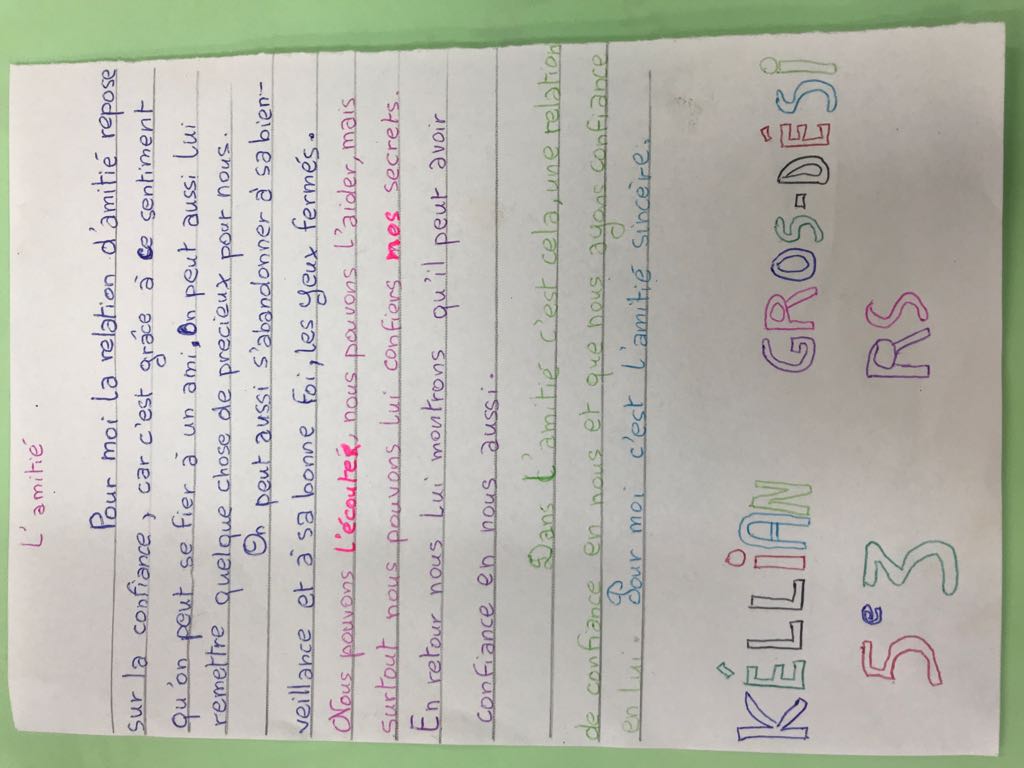 L'amitié
Pour moi la relation d'amitié repose
sur la confiance, car c'est grâce à ce sentiment
qu'on peut se fier à un ami, On peut aussi lui
remettre quelque chose de precieux pour nous.
On peut aussi s'abandonner à sa bien-
veillance et à sa bonne foi, les yeux fermés.
Nous pouvons l'écouter, nous pouvons l'aider, mais
surtout nous pouvons lui confiers mes secrets.
En retour nous lui montrons qu'il peut avoir
confiance en nous aussi.
Dans l'amitié c'est cela, une relation
de confiance en nous et que nous ayons confiance
en lui. Pour moi c'est l'amitié sincère.
KÉLLIAN GROS-DÉSI
5e3 RS